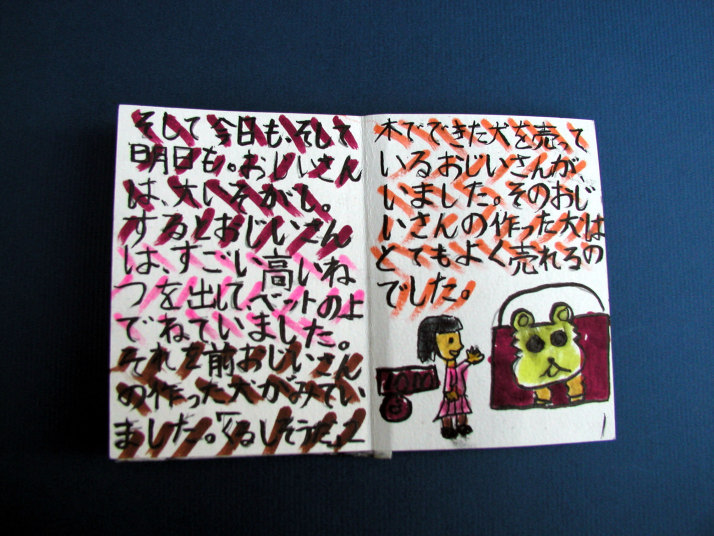 木でできた犬を売って
いるおじいさんが
いました。そのおじ
いさんの作った犬は
とてもよく売れるの
でした。
1
そして今日も、そして
明日も。おじいさん
は、大いそがし。
するとおじいさん
は、すごい高いね
つを出して、ベットの上
でねていました。
それを前おじいさん
の作った犬がみてい
ました。「くるしそうだ」
2